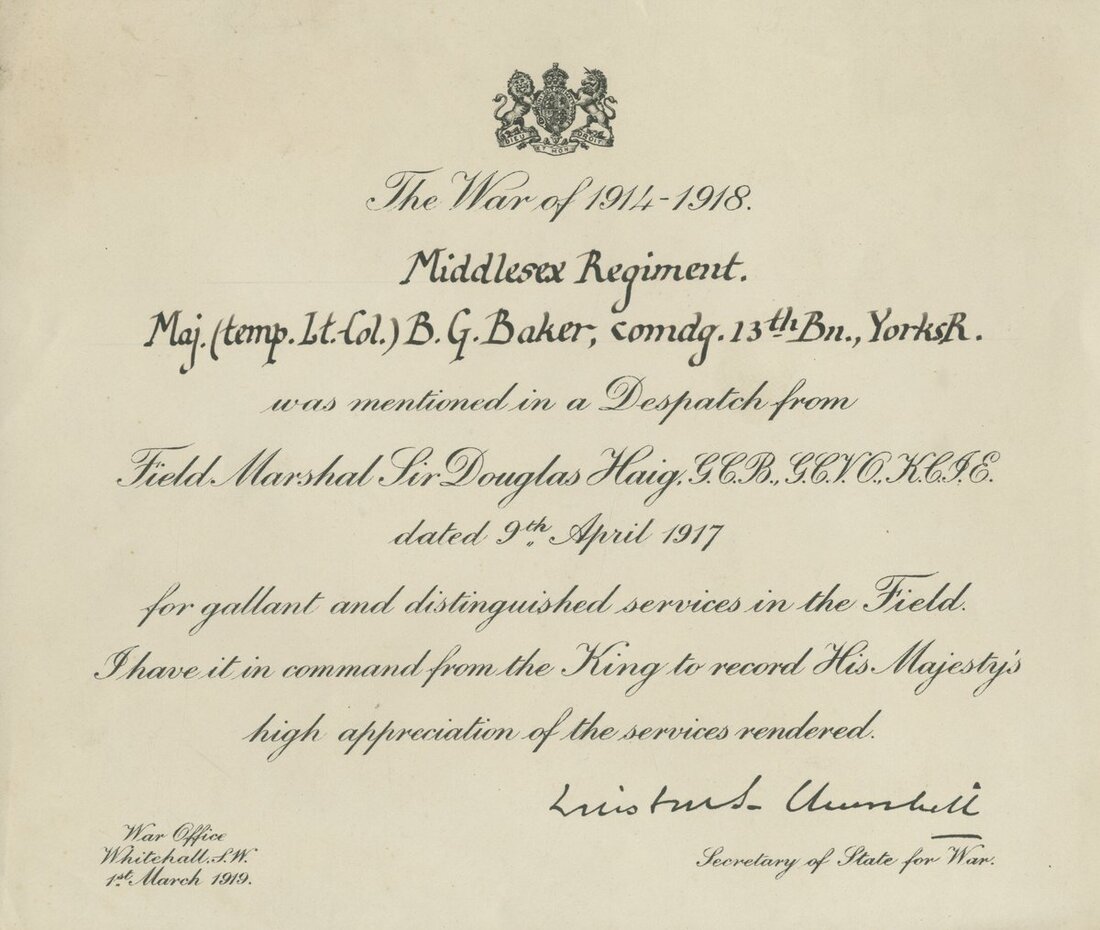 DIEU ET MON DROIT
The War of 1914-1918.
Middlesex Regiment.
Maj. (temp. Lt.-Col.) B. G. Baker, comdg. 13th Bn., York. R.
was mentioned in a Despatch from
Field Marshal Sir Douglas Haig, G.C.B., G.C.V.O., K.C.I.E.
dated 9th April 1917
for gallant and distinguished services in the Field.
I have it in command from the King to record His Majesty's
high appreciation of the services rendered.
Winston S. Churchill
War Office
Whitehall, S.W.
1st March 1919.
Secretary of State for War.